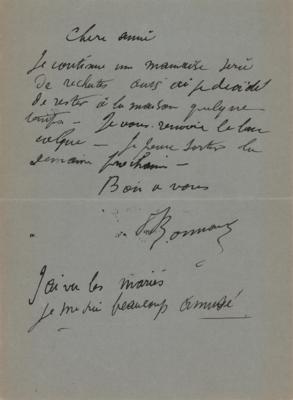 Chère amie
Je continue un mauvaise série
de rechutes aussi ai je décidé
de rester à la maison quelque
temps — Je vous renvoie le
— je pense sortir la
semaine prochaine —
Bon à vous
Bonnard
J'ai vu les mariés
je me suis beaucoup amusé